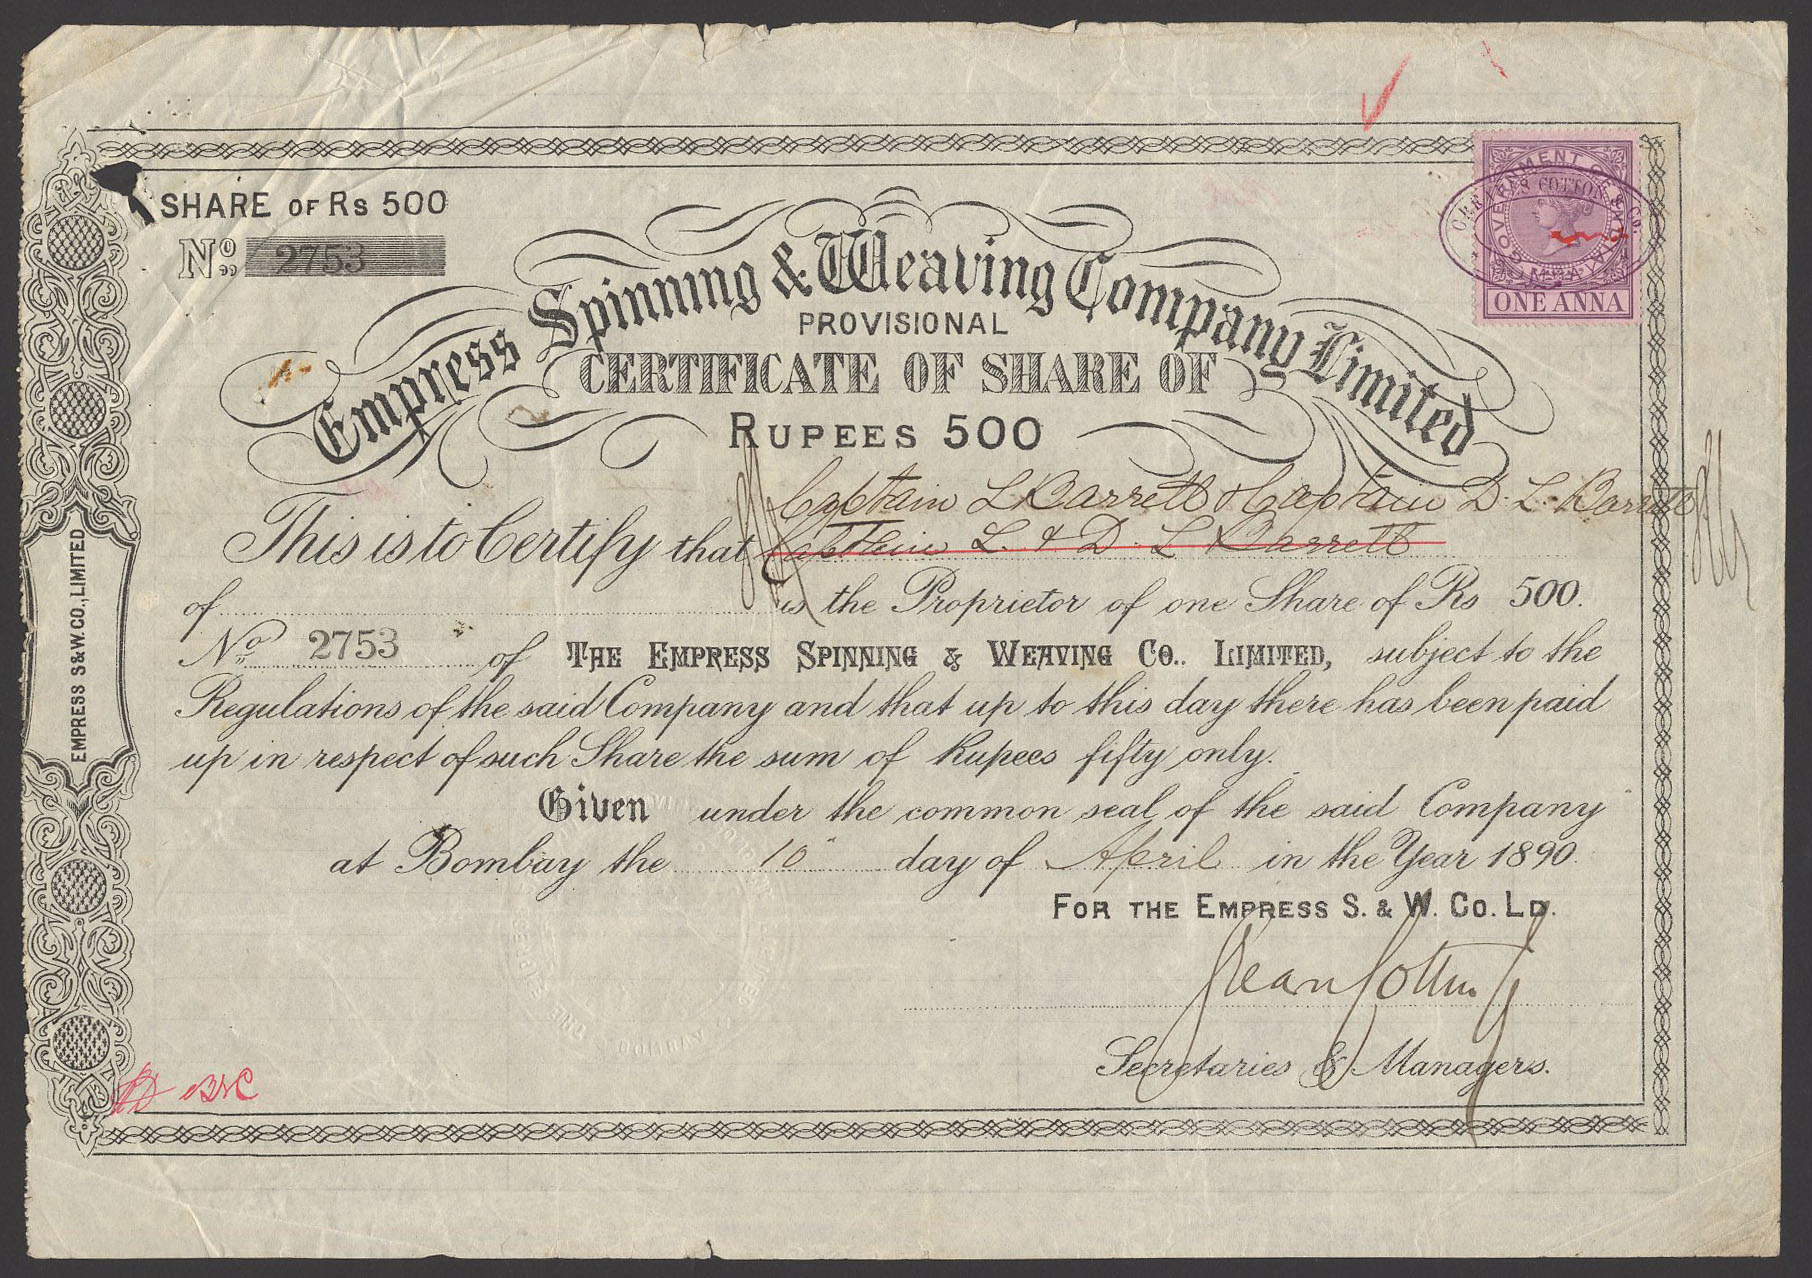 SHARE OF Rs 500
No 2753
Empress Spinning & Weaving Company Limited
PROVISIONAL
CERTIFICATE OF SHARE OF
RUPEES 500
Captain L Barrett & Captain D. L. Barrett
This is to Certify that Captain L. & D. L Barrett
of is the Proprietor of one Share of Rs 500.
No. 2753 of THE EMPRESS SPINNING & WEAVING CO.. LIMITED, subject to the
Regulations of the said Company and that up to this day there has been paid
up in respect of such Share the sum of Rupees fifty only.
Given under the common seal of the said Company
at Bombay the 10 day of April in the Year 1890.
FOR THE EMPRESS S. & W. CO. LD.
Secretaries & Managers.
EMPRESS S&W. CO., LIMITED
GOVERNMENT OF INDIA
ONE ANNA
COTTON
BOMBAY